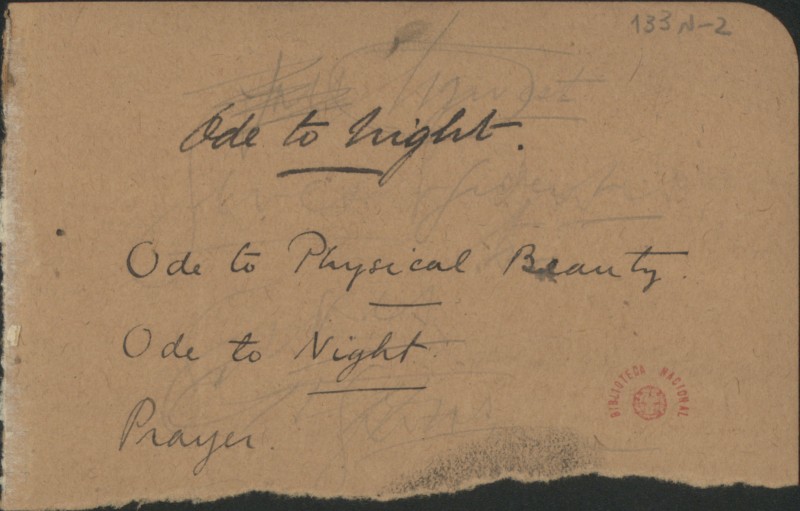 133 N-2
Ode to Night.
Ode to Physical Beauty.
Ode to Night.
Prayer.
BIBLIOTECA NACIONAL